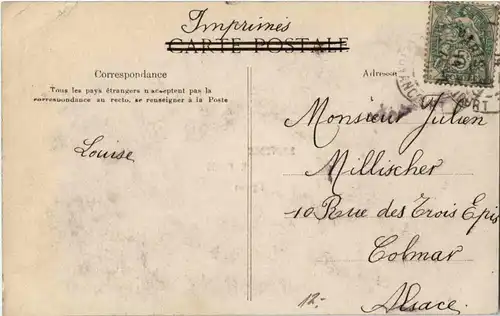 Imprimés
CARTE POSTALE
Correspondance
Tous les pays étrangers n'acceptent pas la
correspondance au recto, se renseigner à la Poste
Adresse
Louise
Monsieur Julien
Millischer
10 Rue des Trois Epis
Colmar
Alsace
12.-